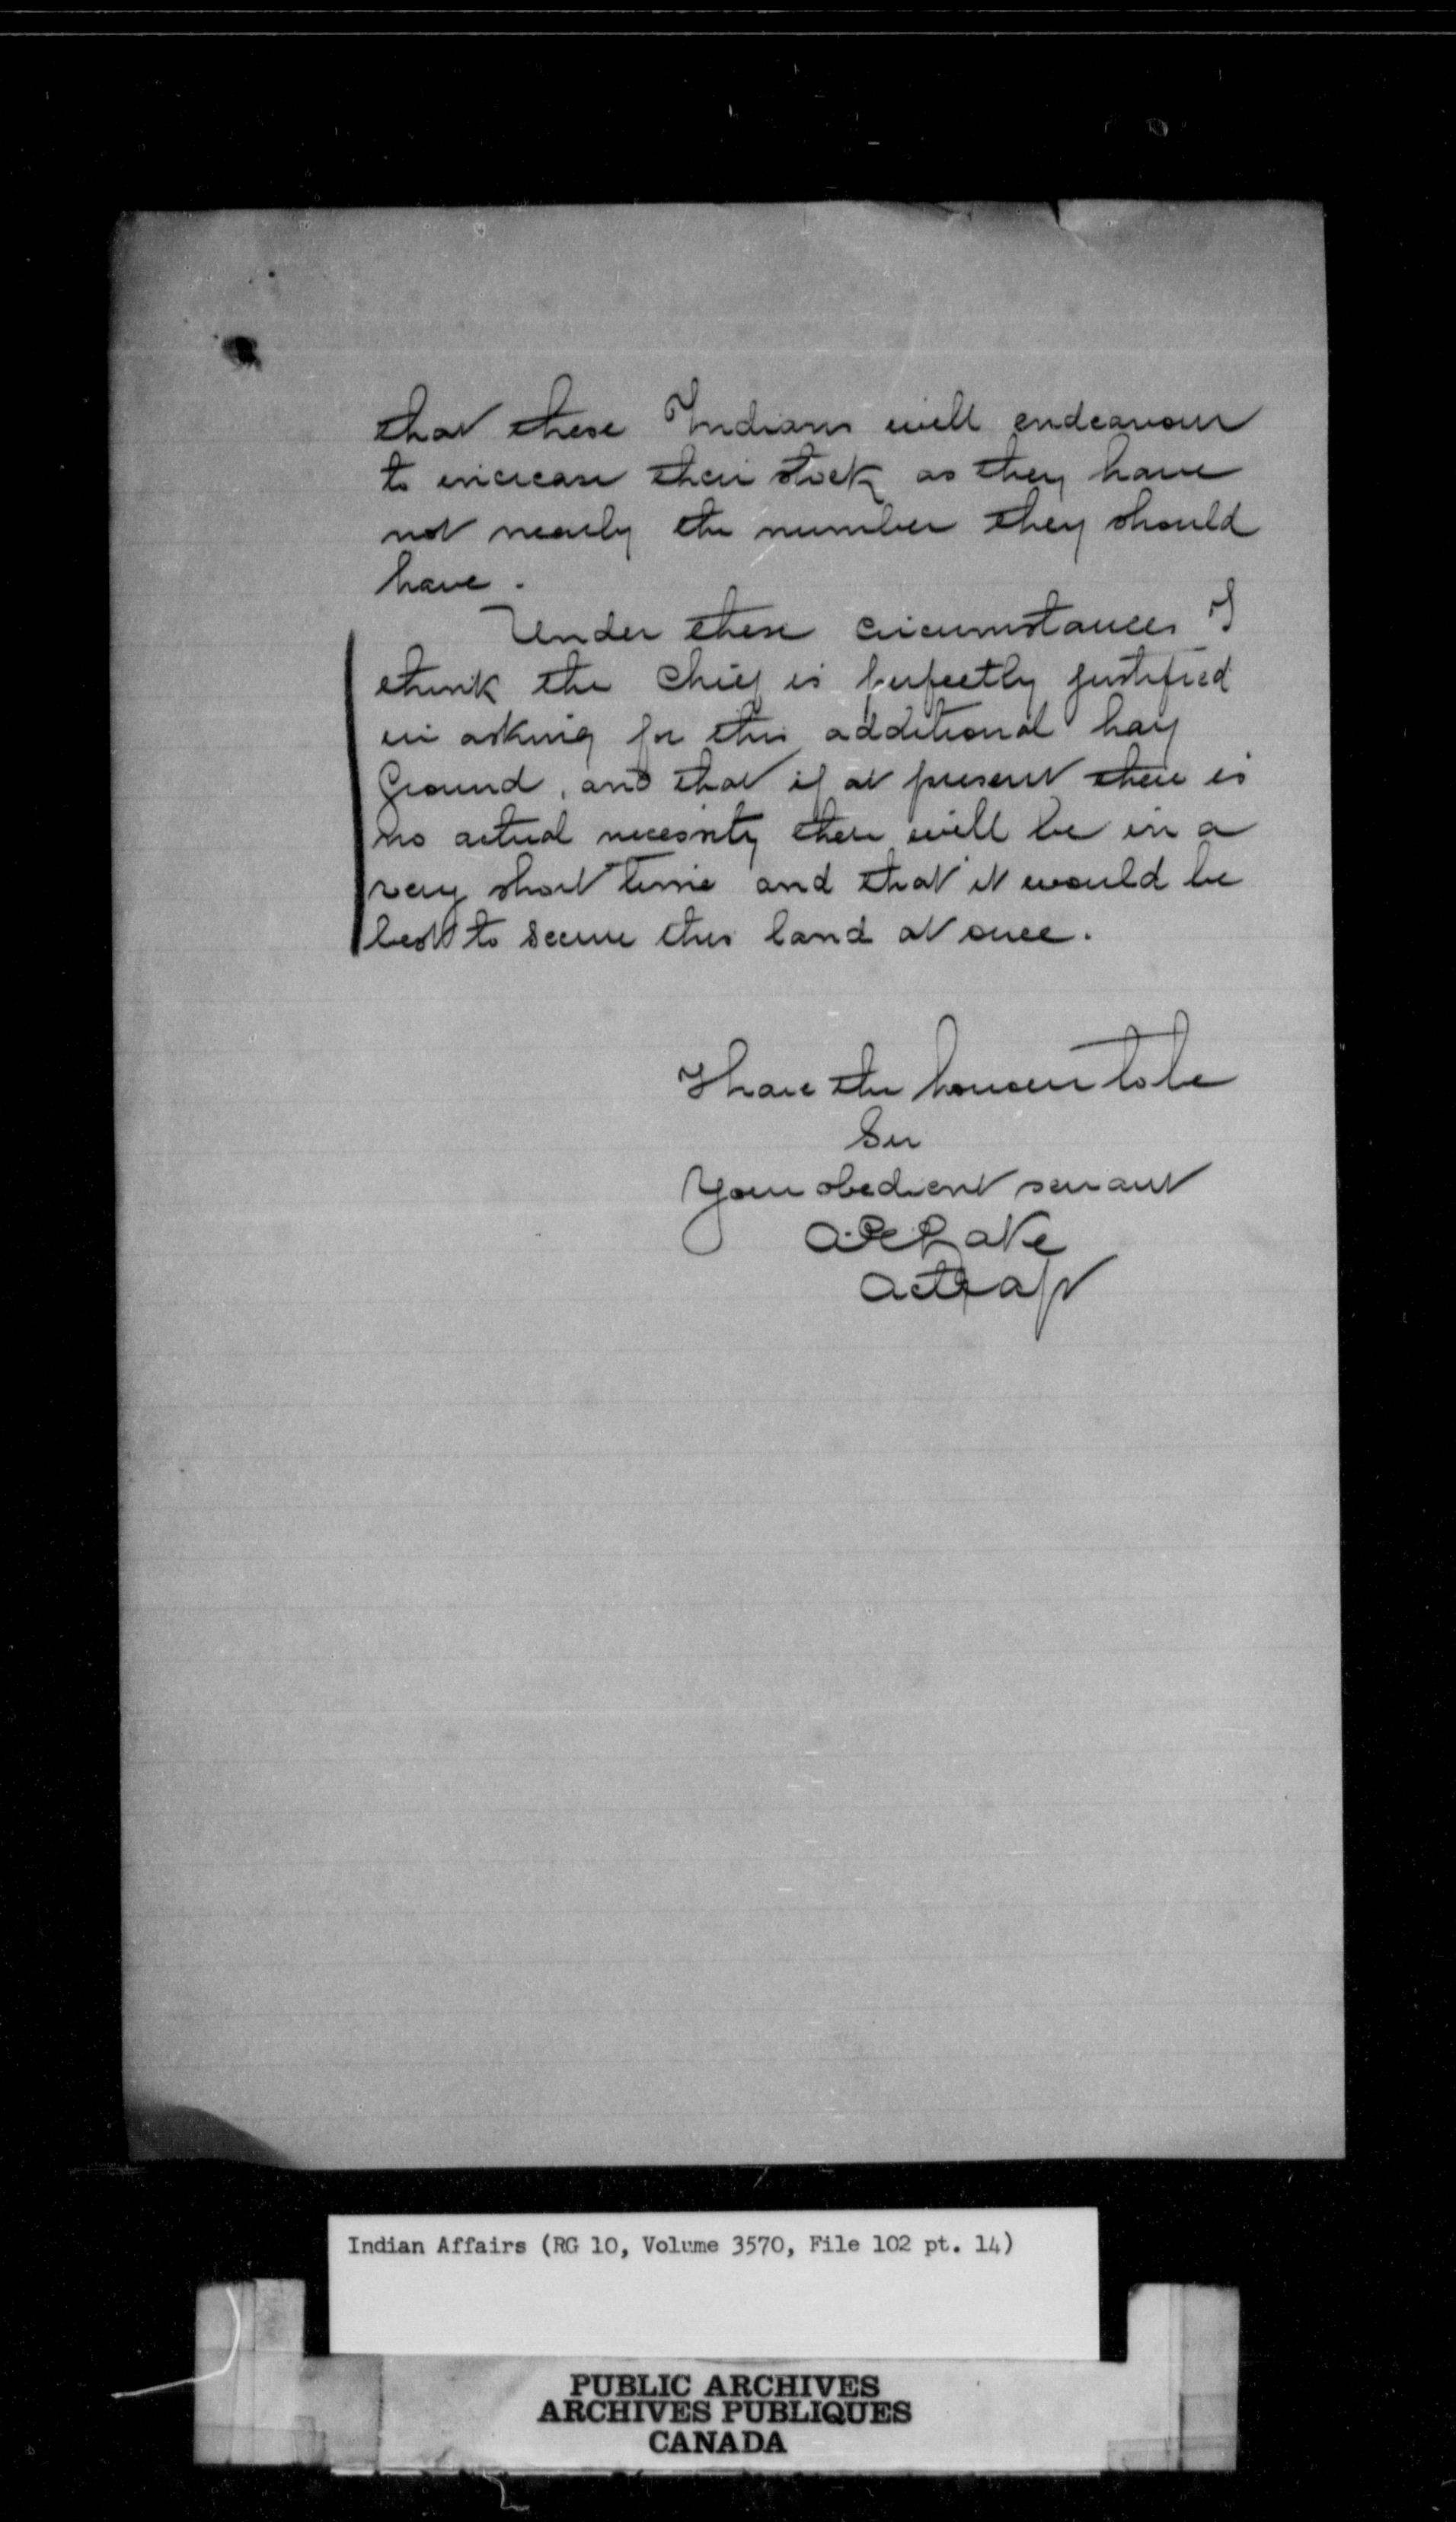 that these Indians will endeavour
to increase their stock as they have
not nearly the number they should
have.
Under these circumstances I
think the Chief is perfectly justified
in asking for this additional hay
Ground, and that if at present there is
no actual necessity there will be in a
very short time and that it would be
best to secure this land at once.
I have the honour to be
Sir
Your obedient servant
Lake
Indian Affairs (RG 10, Volume 3570, File 102 pt. 14)
PUBLIC ARCHIVES
ARCHIVES PUBLIQUES
CANADA